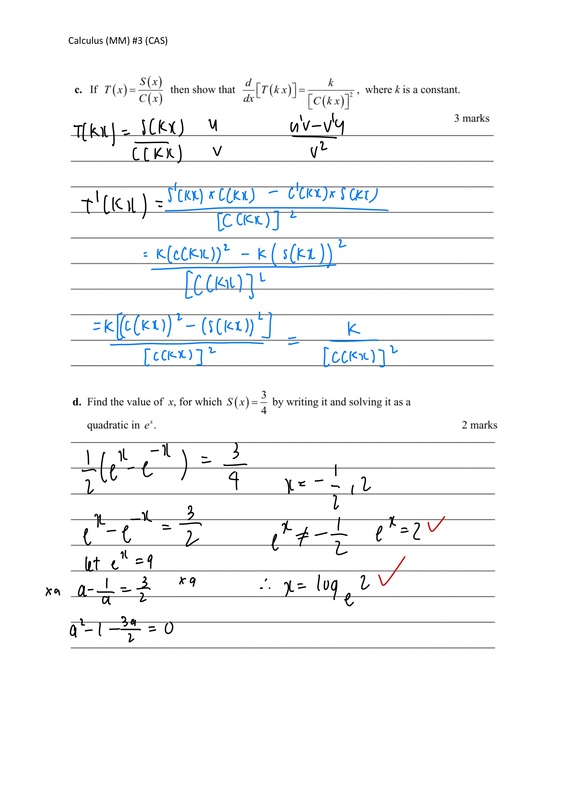 Calculus (MM) #3 (CAS)
c. If T(x) = S(x)/C(x) then show that d/dx [T(kx)] = k/[C(kx)]², where k is a constant.
3 marks
T(kx) = S(kx)/C(kx) u v (u'v − v'u)/v²
T'(kx) = (S'(kx) × C(kx) − C'(kx) × S(kx))/[C(kx)]²
= (k(C(kx))² − k(S(kx))²)/[C(kx)]²
= k[(C(kx))² − (S(kx))²]/[C(kx)]² = k/[C(kx)]²
d. Find the value of x, for which S(x) = 3/4 by writing it and solving it as a
quadratic in eˣ.
2 marks
1/2 (eˣ − e⁻ˣ) = 3/4
eˣ − e⁻ˣ = 3/2
let eˣ = a
×a a − 1/a = 3/2 ×a
a² − 1 − 3a/2 = 0
x = −1/2, 2
eˣ ≠ −1/2 eˣ = 2 ✓
∴ x = logₑ 2 ✓